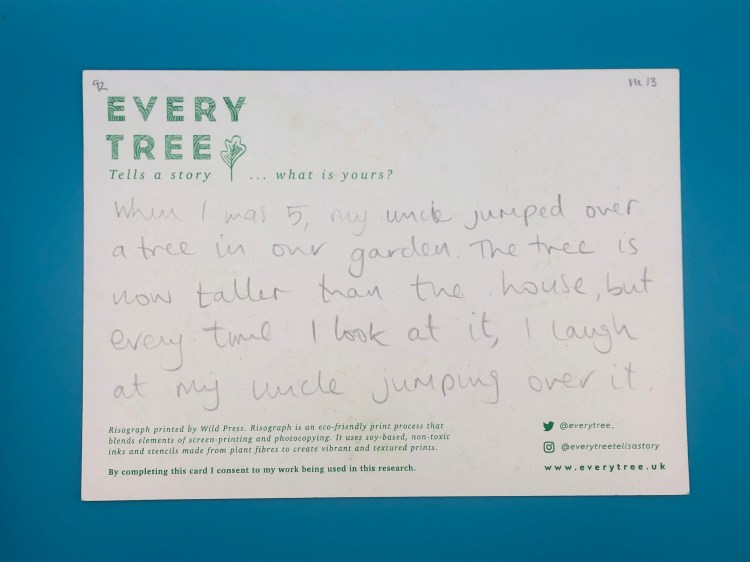 92
EVERY
TREE
Tells a story ... what is yours?
When I was 5, my uncle jumped over
a tree in our garden. The tree is
now taller than the house, but
every time I look at it, I laugh
at my uncle jumping over it.
Risograph printed by Wild Press. Risograph is an eco-friendly print process that
blends elements of screen-printing and photocopying. It uses soy-based, non-toxic
inks and stencils made from plant fibres to create vibrant and textured prints.
By completing this card I consent to my work being used in this research.
@everytree_
@everytreetellsastory
www.everytree.uk